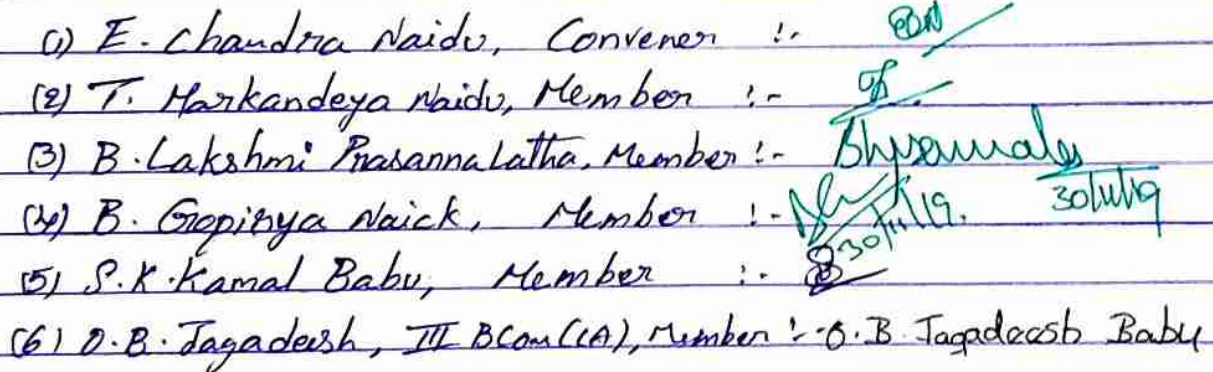 (1) E. Chandra Naidu, Convener :-
(2) T. Markandeya Naidu, Member :-
(3) B. Lakshmi Prasanna Latha, Member :- 30/11/19
(4) B. Gopinya Naick, Member :- 30/11/19.
(5) S.K. Kamal Babu, Member :-
(6) O.B. Jagadeesh, III BCom (CA), Member :- O.B. Jagadeesh Babu